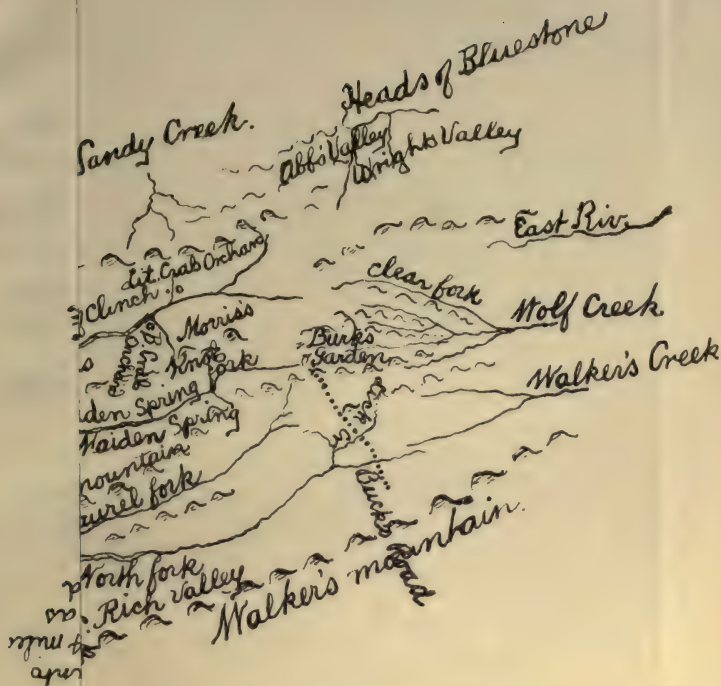 Heads of Bluestone
Sandy Creek.
Abb's Valley
Wright's Valley
East Riv.
Lit. Crab Orchard
Clinch
clear fork
Wolf Creek
Morris's
Knob
B. Crab
Orchard
s
fork
Burk's
Garden
Walker's Creek
iden Spring
Maiden Spring
mountain
aurel fork
Buck's Road
North fork
Rich Valley
Walker's mountain.
as
of miles